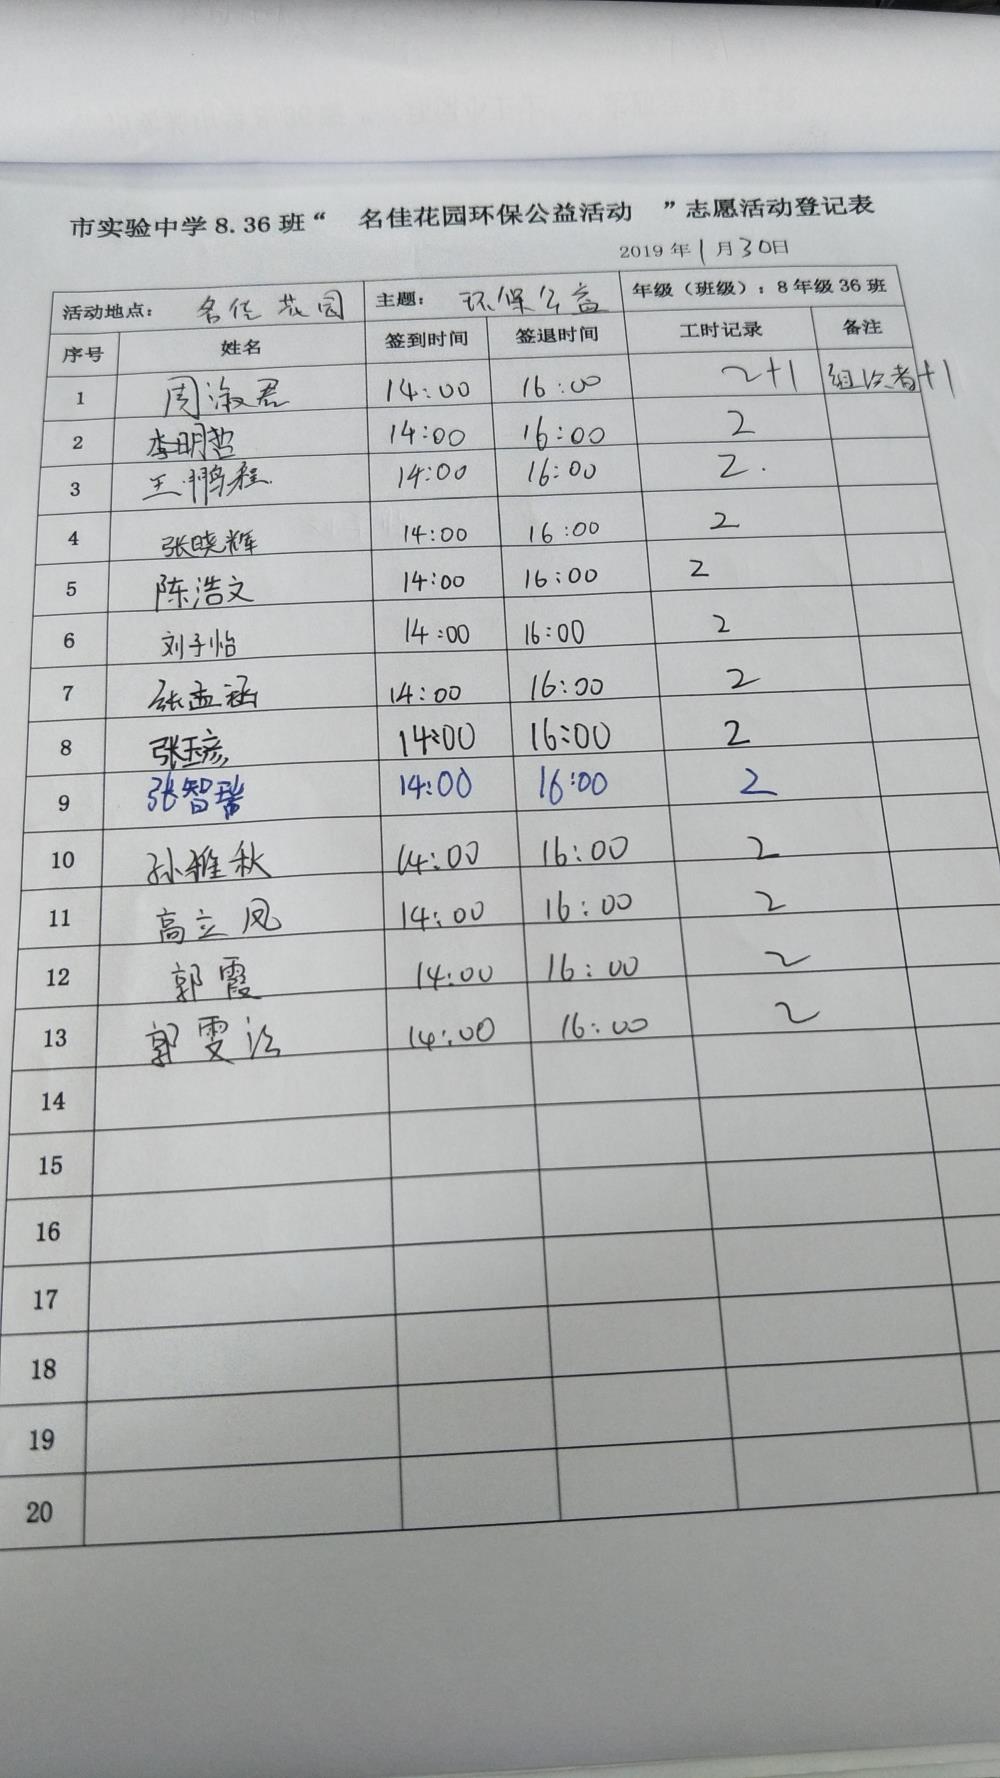 市实验中学8.36班“ 名佳花园环保公益活动 ”志愿活动登记表
2019年1月30日
活动地点： 名佳花园 主题： 环保公益 年级（班级）：8年级36班
序号 姓名 签到时间 签退时间 工时记录 备注
1 周淑君 14:00 16:00 2+1 组织者+1
2 李明哲 14:00 16:00 2
3 王鹏程 14:00 16:00 2.
4 张晓辉 14:00 16:00 2
5 陈浩文 14:00 16:00 2
6 刘子怡 14:00 16:00 2
7 张孟涵 14:00 16:00 2
8 张玉彦 14:00 16:00 2
9 张智瑞 14:00 16:00 2
10 孙雅秋 14:00 16:00 2
11 高立凤 14:00 16:00 2
12 郭霞 14:00 16:00 2
13 郭雯 14:00 16:00 2
14
15
16
17
18
19
20